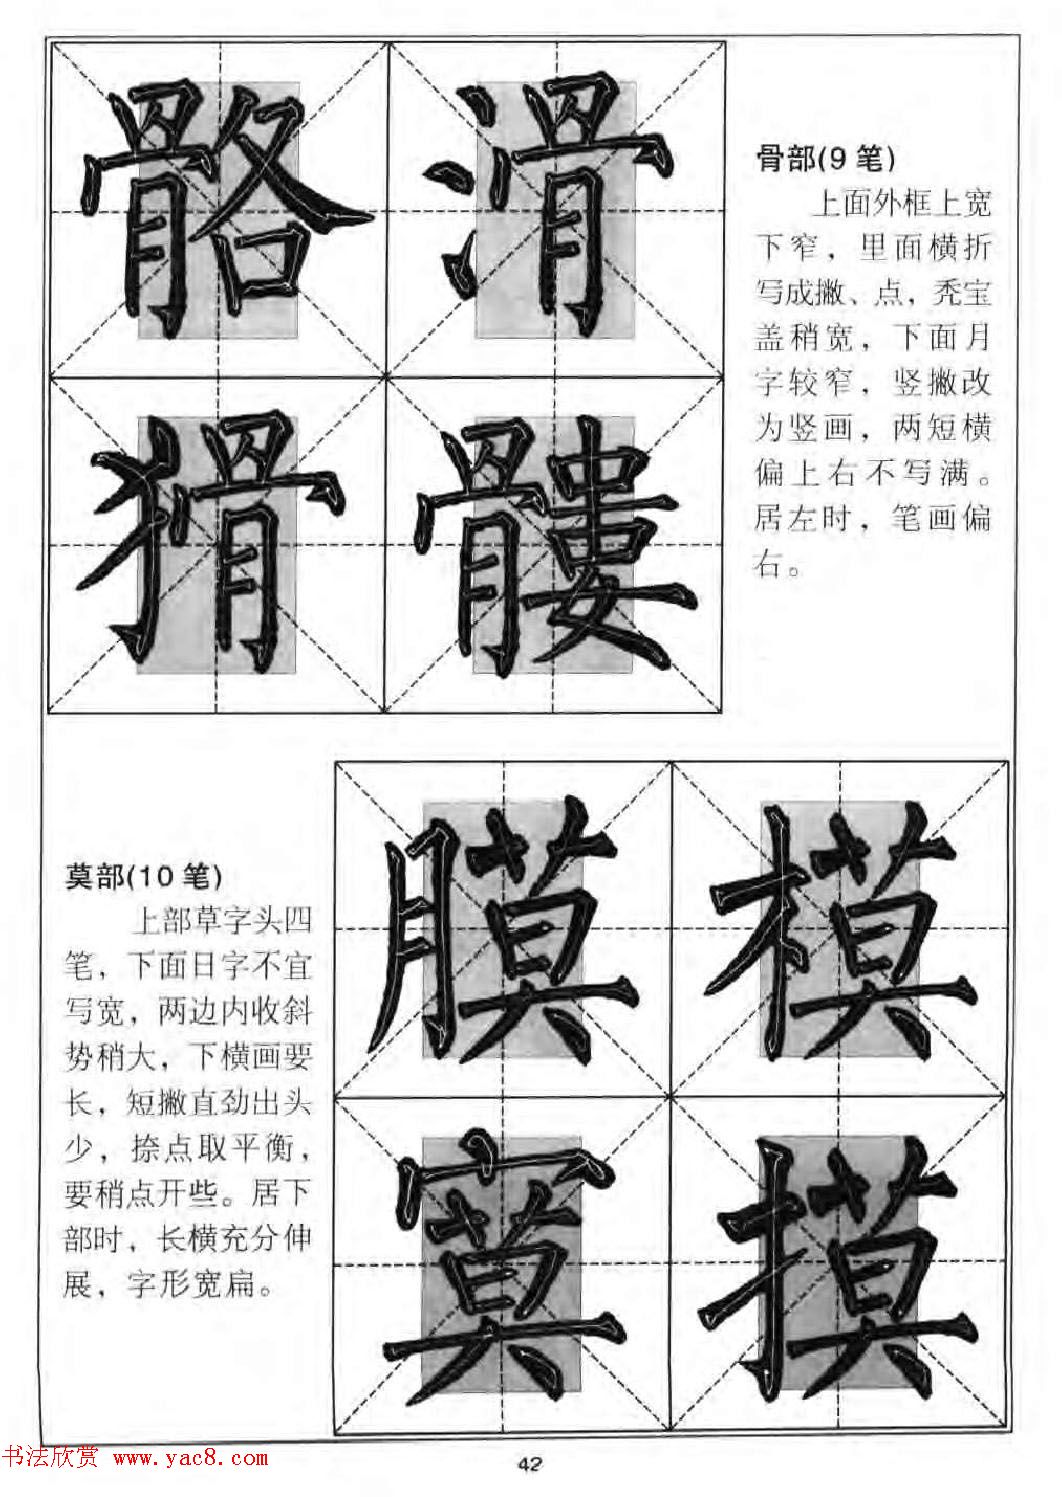 骼滑
猾髅
骨部(9 笔)
上面外框上宽
下窄，里面横折
写成撇、点，秃宝
盖稍宽，下面月
字较窄，竖撇改
为竖画，两短横
偏上右不写满。
居左时，笔画偏
右。
莫部(10 笔)
上部草字头四
笔，下面日字不宜
写宽，两边内收斜
势稍大，下横画要
长，短撇直劲出头
少，捺点取平衡，
要稍点开些。居下
部时，长横充分伸
展，字形宽扁。
膜模
寞摸
书法欣赏 www.yac8.com
42